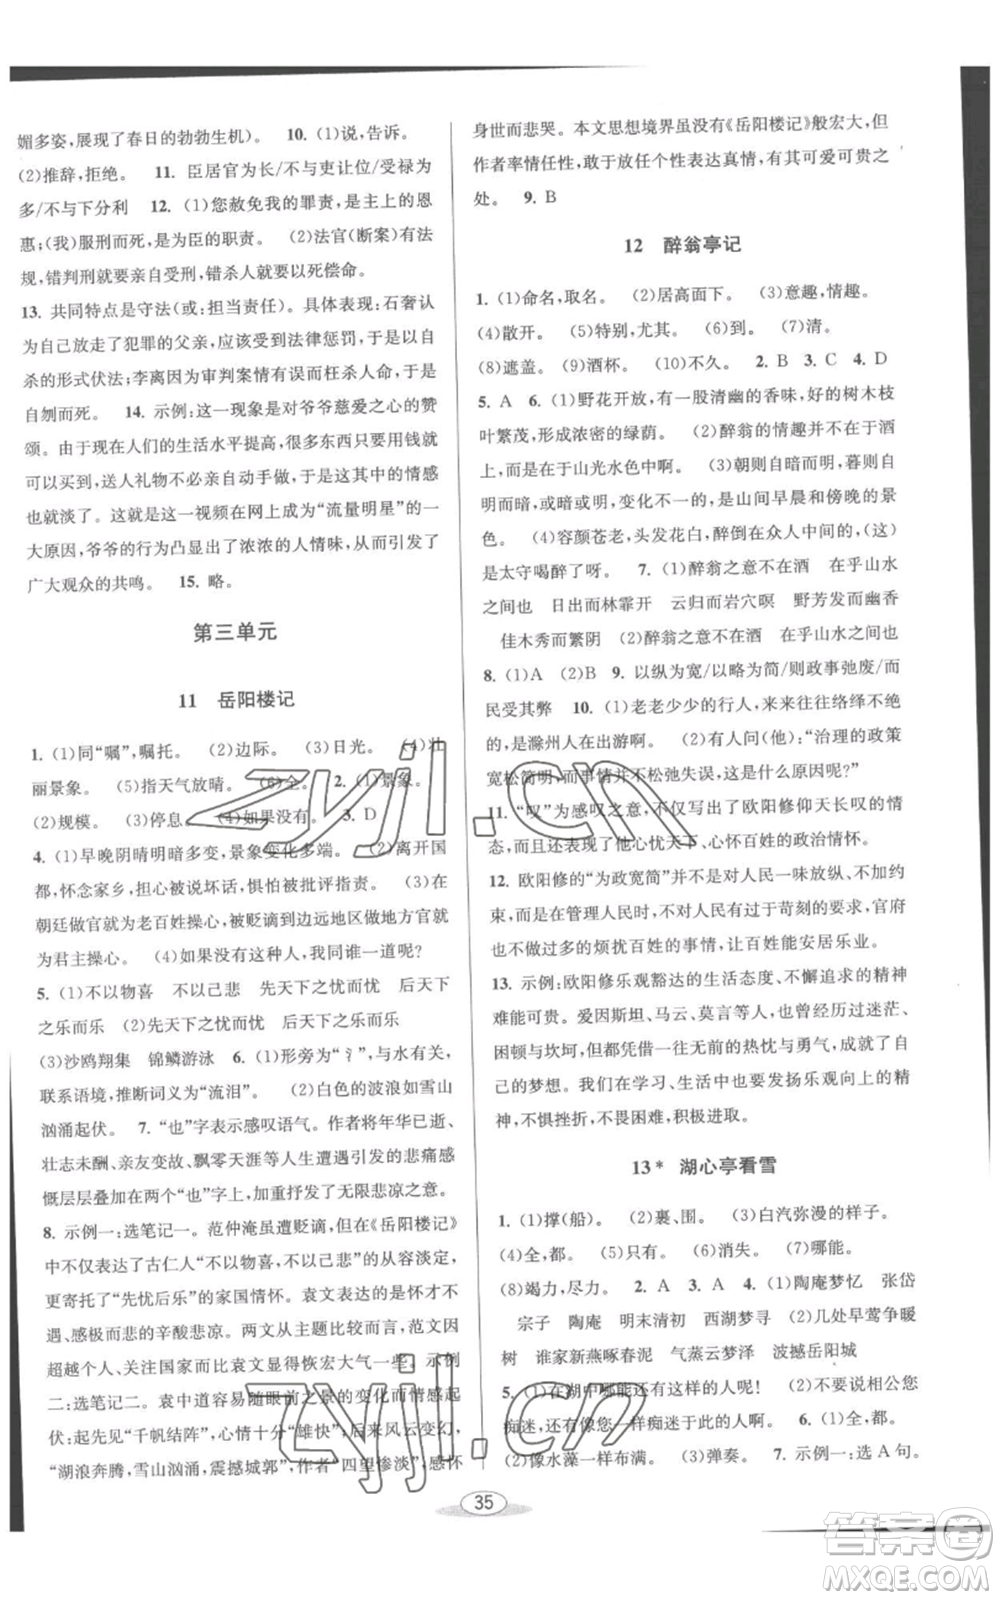 媚多姿，展现了春日的勃勃生机）。 10. (1)说，告诉。
(2)推辞，拒绝。 11. 臣居官为长/不与吏让位/受禄为
多/不与下分利 12. (1)您赦免我的罪责，是主上的恩
惠；（我）服刑而死，是为臣的职责。 (2)法官（断案）有法
规，错判刑就要亲自受刑，错杀人就要以死偿命。
13. 共同特点是守法（或：担当责任）。具体表现：石奢认
为自己放走了犯罪的父亲，应该受到法律惩罚，于是以自
杀的形式伏法；李离因为审判案情有误而枉杀人命，于是
自刎而死。 14. 示例：这一现象是对爷爷慈爱之心的赞
颂。由于现在人们的生活水平提高，很多东西可以用钱就
可以买到，送人礼物不必亲自动手做，于是这其中的情感
也就淡了。这就是这一视频在网上成为“流量明星”的一
大原因，爷爷的行为凸显出了浓浓的人情味，从而引发了
广大观众的共鸣。 15. 略。
第三单元
11 岳阳楼记
1. (1)同“嘱”，嘱托。 (2)边际。 (3)日光。 (4)壮
丽景象。 (5)指天气放晴。 (6)全。 2. (1)景象。
(2)规模。 (3)停息。 (4)如果没有。 3. D
4. (1)早晚阴晴明暗多变，景象变化多端。 (2)离开国
都，怀念家乡，担心被说坏话，惧怕被批评指责。 (3)在
朝廷做官就为老百姓操心，被贬谪到边远地区做地方官就
为君主操心。 (4)如果没有这种人，我同谁一道呢？
5. (1)不以物喜 不以己悲 先天下之忧而忧 后天下
之乐而乐 (2)先天下之忧而忧 后天下之乐而乐
(3)沙鸥翔集 锦鳞游泳 6. (1)形旁为“氵”，与水有关，
联系语境，推断词义为“流泪”。 (2)白色的波浪如雪山
汹涌起伏。 7. “也”字表示感叹语气。作者将年华已逝、
壮志未酬、亲友变故、飘零天涯等人生中遇到的悲痛感
慨层层叠加在六个“也”字上，加重抒发了无限悲凉之意。
8. 示例一：选笔记一。范仲淹虽遭贬谪，但在《岳阳楼记》
中不仅写出了古仁人“不以物喜，不以己悲”的从容淡定，
更寄托了“先忧后乐”的家国情怀。袁文表达的是怀才不
遇、感极而悲的辛酸悲凉。两文从主题比较来看，范文因
超越个人、关注国家故比袁文显得恢宏大气一些。示例
二：选笔记二。袁中道容易随眼前之景的变化而情感起
伏：起先见如“千帆结阵”，心情十分“雄快”；后来风云变幻，
“湖浪奔腾，雪山汹涌，震撼城郭”，作者“四望惨淡”，感怀
身世而悲哭。本文思想境界虽没有《岳阳楼记》般宏大，但
作者率情任性，敢于放任个性表达真情，有其可爱可贵之
处。 9. B
12 醉翁亭记
1. (1)命名，取名。 (2)居高面下。 (3)意趣，情趣。
(4)散开。 (5)特别，尤其。 (6)到。 (7)清。
(8)遮盖。 (9)酒杯。 (10)不久。 2. B 3. C 4. D
5. A 6. (1)野花开放，有一股清幽的香味，好的树木枝
叶繁茂，形成浓密的绿荫。 (2)醉翁的情趣并不在酒
上，而是在于山光水色中啊。 (3)朝则自暗而明，暮则自
明而暗，或暗或明，变化不一的，是山间早晨和傍晚的景
色。 (4)容颜苍老，头发花白，醉倒在众人中间的，（这）
是太守喝醉了呀。 7. (1)醉翁之意不在酒 在乎山水
之间也 日出而林霏开 云归而岩穴暝 野芳发而幽香
佳木秀而繁阴 (2)醉翁之意不在酒 在乎山水之间也
8. (1)A (2)B 9. 以纵为宽/以略为简/则政事弛废/而
民受其弊 10. (1)老老少少的行人，来来往往络绎不绝
的，是滁州人在出游啊。 (2)有人问（他）：“治理的政策
宽松简明，而事情并没有松弛失误，这是什么原因呢？”
11. “叹”为感叹之意，不仅写出了欧阳修仰天长叹的情
态，更表达出了他心忧天下、心怀百姓的政治情怀。
12. 欧阳修的“为政宽简”并不是对人民一味放纵、不加约
束，而是在管理人民时，不对人民有过于苛刻的要求，官府
也不做过多的烦扰百姓的事情，让百姓能安居乐业。
13. 示例：欧阳修乐观豁达的生活态度、不懈追求的精神
难能可贵。爱因斯坦、马云、莫言等人，也曾经历过迷茫、
困顿与坎坷，但凭借一往无前的热忱与勇气，成就了自
己的梦想。我们在学习、生活中也要发扬乐观向上的精
神，不惧挫折，不畏困难，积极进取。
13* 湖心亭看雪
1. (1)撑（船）。 (2)裹、围。 (3)白汽弥漫的样子。
(4)全，都。 (5)只有。 (6)消失。 (7)哪能。
(8)竭力，尽力。 2. A 3. A 4. (1)陶庵梦忆 张岱
宗子 陶庵 明末清初 西湖梦寻 (2)几处早莺争暖
树 谁家新燕啄春泥 气蒸云梦泽 波撼岳阳城
5. (1)在湖中哪能还有这样的人呢！ (2)不要说相公您
痴迷，还有像您一样痴迷于山水的人啊！ 6. (1)全，都。
(2)像水藻一样布满。 (3)弹奏。 7. 示例一：选A句。
35
zyjl.cn
zyjl.cn
答案圈
MXQE.COM